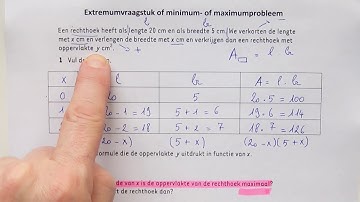 Extremumvraagstuk of minimum- of maximumprobleem
l b
Een rechthoek heeft als lengte 20 cm en als breedte 5 cm. We verkorten de lengte
met x cm en verlengen de breedte met x cm en verkrijgen dan een rechthoek met
oppervlakte y cm². → + A = l b
1 Vul de
x l b A = l · b
0 20 5 20 · 5 = 100
1 20 - 1 = 19 5 + 1 = 6 19 · 6 = 114
20 - 2 = 18 5 + 2 = 7 18 · 7 = 126
(20 - x) (5 + x) (20 - x)(5 + x)
formule die de oppervlakte y uitdrukt in functie van x.
de van x is de oppervlakte van de rechthoek maximaal?
t de rechthoek dan?